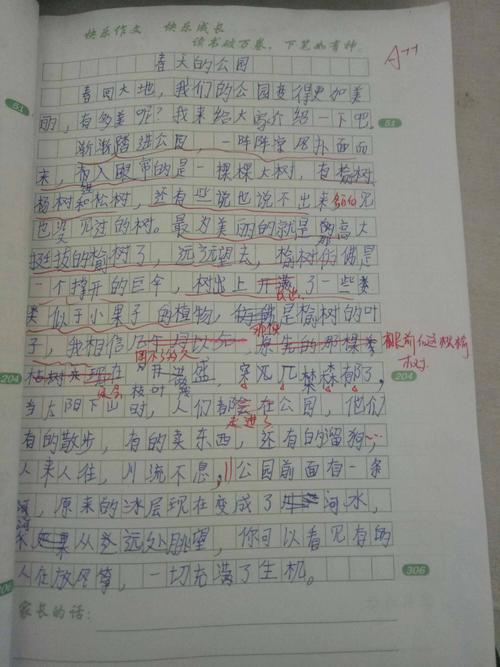 快乐作文 快乐成长
读书破万卷，下笔如有神.
A++
春天的公园
春回大地，我们的公园变得更加美
丽，有多美呢？我来给大家介绍一下吧。
51
51
渐渐踏进公园，一阵阵空居扑面而
来，映入眼帘的是一棵棵大树，有榆树
杨树和松树，还有些说也说不出来
也没见过的树。最为美丽的就是那高大
挺拔的榆树了，远远望去，榆树仿佛是
一个撑开的巨伞，树出上开满了一些
类似于小果子的植物，仿佛是榆树的叶
子，我相信 原先的那棵
眼前的这棵榆树
204
204
枝叶茂盛，郁了，
当太阳下山时，人们都会在公园，他们
走进了
有的散步，有的卖东西，还有的溜狗……
人来人往，川流不息，公园前面有一条
河，原来的冰层现在变成了河水，
从远处眺望，你可以看见有的
人在放风筝，一切充满了生机。
306
家长的话：